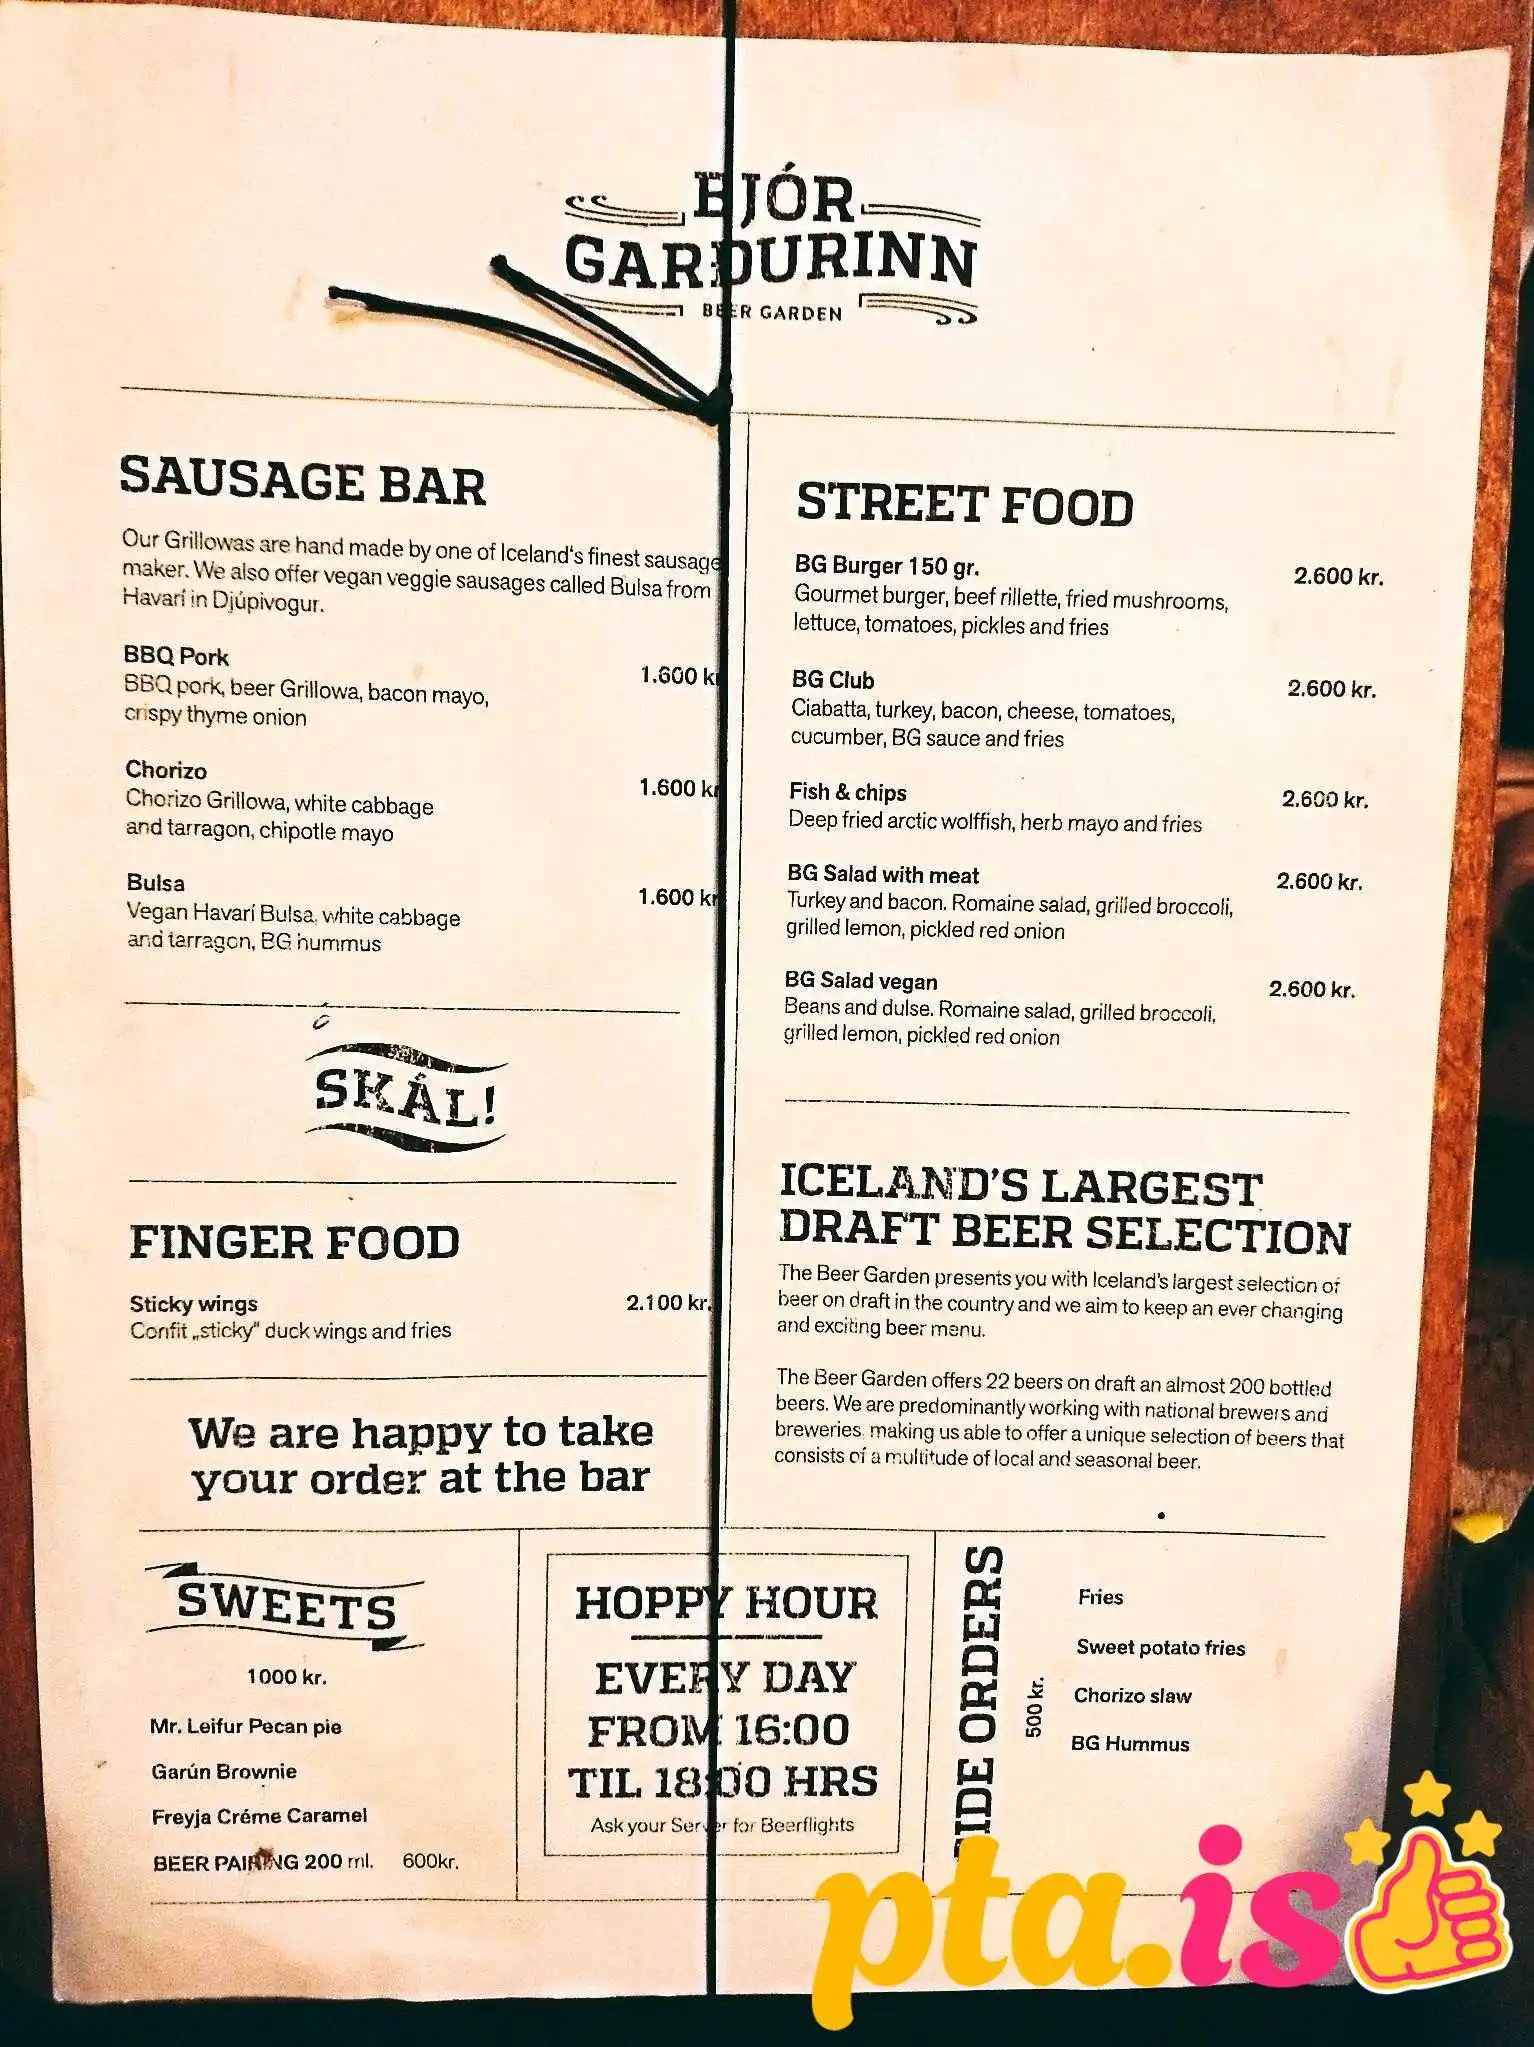 BJÓR
GARÐURINN
BEER GARDEN
SAUSAGE BAR
Our Grillowas are hand made by one of Iceland's finest sausage
maker. We also offer vegan veggie sausages called Bulsa from
Havarí in Djúpivogur.
BBQ Pork 1.600 kr
BBQ pork, beer Grillowa, bacon mayo,
crispy thyme onion
Chorizo 1.600 kr
Chorizo Grillowa, white cabbage
and tarragon, chipotle mayo
Bulsa 1.600 kr
Vegan Havarí Bulsa, white cabbage
and tarragon, BG hummus
SKÁL!
FINGER FOOD
Sticky wings 2.100 kr.
Confit „sticky" duck wings and fries
We are happy to take
your order at the bar
STREET FOOD
BG Burger 150 gr. 2.600 kr.
Gourmet burger, beef rillette, fried mushrooms,
lettuce, tomatoes, pickles and fries
BG Club 2.600 kr.
Ciabatta, turkey, bacon, cheese, tomatoes,
cucumber, BG sauce and fries
Fish & chips 2.600 kr.
Deep fried arctic wolffish, herb mayo and fries
BG Salad with meat 2.600 kr.
Turkey and bacon. Romaine salad, grilled broccoli,
grilled lemon, pickled red onion
BG Salad vegan 2.600 kr.
Beans and dulse. Romaine salad, grilled broccoli,
grilled lemon, pickled red onion
ICELAND'S LARGEST
DRAFT BEER SELECTION
The Beer Garden presents you with Iceland's largest selection of
beer on draft in the country and we aim to keep an ever changing
and exciting beer menu.
The Beer Garden offers 22 beers on draft an almost 200 bottled
beers. We are predominantly working with national brewers and
breweries, making us able to offer a unique selection of beers that
consists of a multitude of local and seasonal beer.
SWEETS
1000 kr.
Mr. Leifur Pecan pie
Garún Brownie
Freyja Créme Caramel
BEER PAIRING 200 ml. 600kr.
HOPPY HOUR
EVERY DAY
FROM 16:00
TIL 18:00 HRS
Ask your Server for Beerflights
SIDE ORDERS
500 kr.
Fries
Sweet potato fries
Chorizo slaw
BG Hummus
pta.is